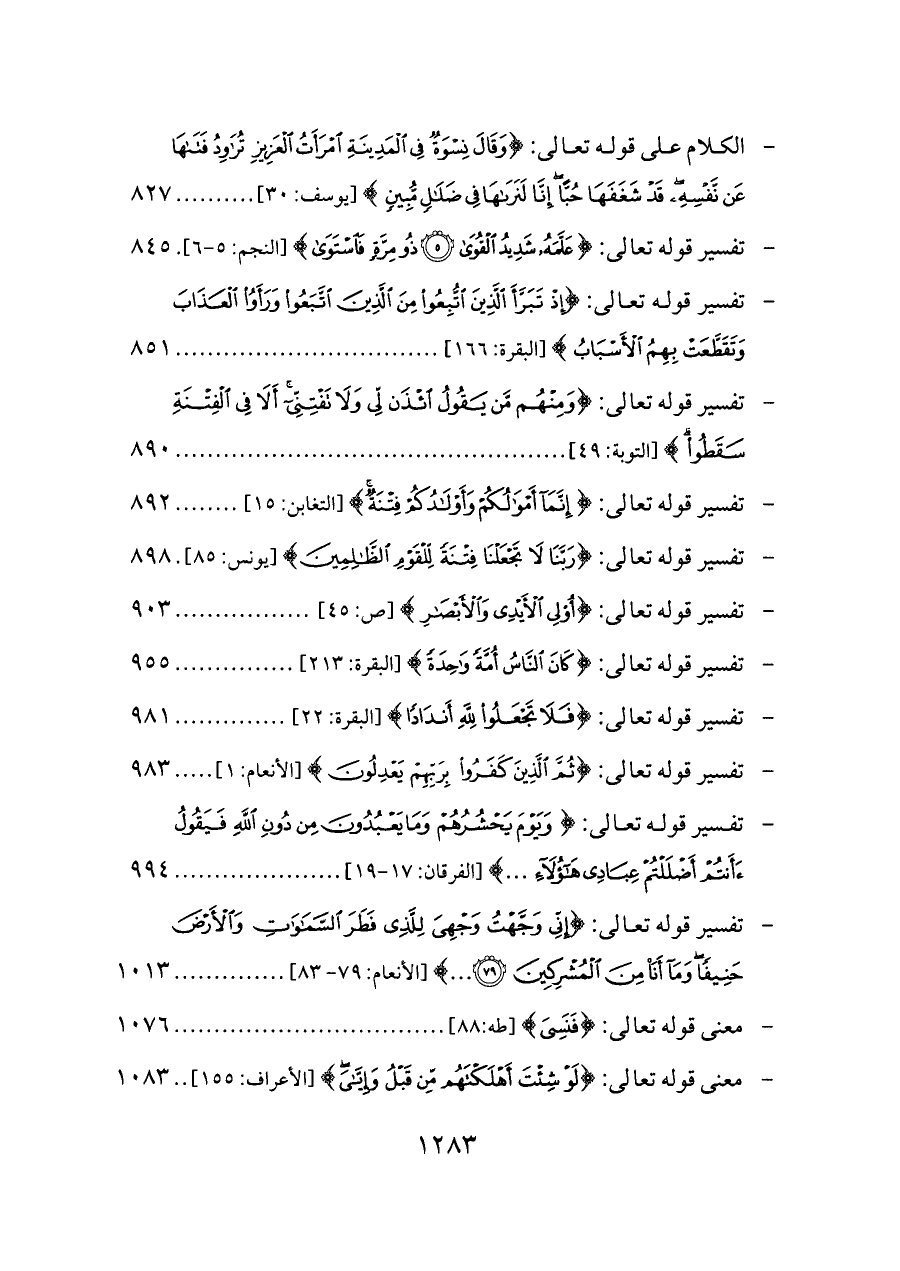 - الكلام على قوله تعالى: ﴿وَقَالَ نِسْوَةٌ فِي ٱلْمَدِينَةِ ٱمْرَأَتُ ٱلْعَزِيزِ تُرَٰوِدُ فَتَىٰهَا
عَن نَّفْسِهِۦۖ قَدْ شَغَفَهَا حُبًّاۖ إِنَّا لَنَرَىٰهَا فِي ضَلَٰلٍ مُّبِينٍ﴾ [يوسف: ٣٠] .......... ٨٢٧
- تفسير قوله تعالى: ﴿عَلَّمَهُۥ شَدِيدُ ٱلْقُوَىٰ ٥ ذُو مِرَّةٍ فَٱسْتَوَىٰ﴾ [النجم: ٥-٦]. ٨٤٥
- تفسير قوله تعالى: ﴿إِذْ تَبَرَّأَ ٱلَّذِينَ ٱتُّبِعُوا۟ مِنَ ٱلَّذِينَ ٱتَّبَعُوا۟ وَرَأَوُا۟ ٱلْعَذَابَ
وَتَقَطَّعَتْ بِهِمُ ٱلْأَسْبَابُ﴾ [البقرة: ١٦٦] ................................. ٨٥١
- تفسير قوله تعالى: ﴿وَمِنْهُم مَّن يَقُولُ ٱئْذَن لِّي وَلَا تَفْتِنِّيٓۚ أَلَا فِي ٱلْفِتْنَةِ
سَقَطُوا۟ۗ﴾ [التوبة: ٤٩] ................................................. ٨٩٠
- تفسير قوله تعالى: ﴿إِنَّمَآ أَمْوَٰلُكُمْ وَأَوْلَٰدُكُمْ فِتْنَةٌۚ﴾ [التغابن: ١٥] ........ ٨٩٢
- تفسير قوله تعالى: ﴿رَبَّنَا لَا تَجْعَلْنَا فِتْنَةً لِّلْقَوْمِ ٱلظَّٰلِمِينَ﴾ [يونس: ٨٥]. ٨٩٨
- تفسير قوله تعالى: ﴿أُو۟لِي ٱلْأَيْدِي وَٱلْأَبْصَٰرِ﴾ [ص: ٤٥] ................. ٩٠٣
- تفسير قوله تعالى: ﴿كَانَ ٱلنَّاسُ أُمَّةً وَٰحِدَةً﴾ [البقرة: ٢١٣] ............... ٩٥٥
- تفسير قوله تعالى: ﴿فَلَا تَجْعَلُوا۟ لِلَّهِ أَندَادًا﴾ [البقرة: ٢٢] .............. ٩٨١
- تفسير قوله تعالى: ﴿ثُمَّ ٱلَّذِينَ كَفَرُوا۟ بِرَبِّهِمْ يَعْدِلُونَ﴾ [الأنعام: ١] ..... ٩٨٣
- تفسير قوله تعالى: ﴿وَيَوْمَ يَحْشُرُهُمْ وَمَا يَعْبُدُونَ مِن دُونِ ٱللَّهِ فَيَقُولُ
ءَأَنتُمْ أَضْلَلْتُمْ عِبَادِي هَٰٓؤُلَآءِ ...﴾ [الفرقان: ١٧-١٩] ..................... ٩٩٤
- تفسير قوله تعالى: ﴿إِنِّي وَجَّهْتُ وَجْهِيَ لِلَّذِي فَطَرَ ٱلسَّمَٰوَٰتِ وَٱلْأَرْضَ
حَنِيفًاۖ وَمَآ أَنَا۠ مِنَ ٱلْمُشْرِكِينَ ٧٩ ...﴾ [الأنعام: ٧٩-٨٣] .............. ١٠١٣
- معنى قوله تعالى: ﴿فَنَسِيَ﴾ [طه:٨٨] .................................. ١٠٧٦
- معنى قوله تعالى: ﴿لَوْ شِئْتَ أَهْلَكْتَهُم مِّن قَبْلُ وَإِيَّٰيَۖ﴾ [الأعراف: ١٥٥] .. ١٠٨٣
١٢٨٣